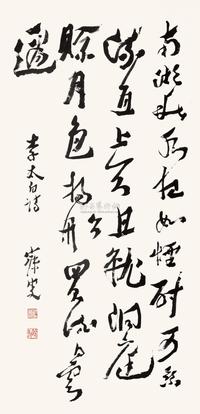 南湖秋水夜無煙耐可乘
流直上天且就洞庭
賒月色將船買酒白雲
邊
李太白詩